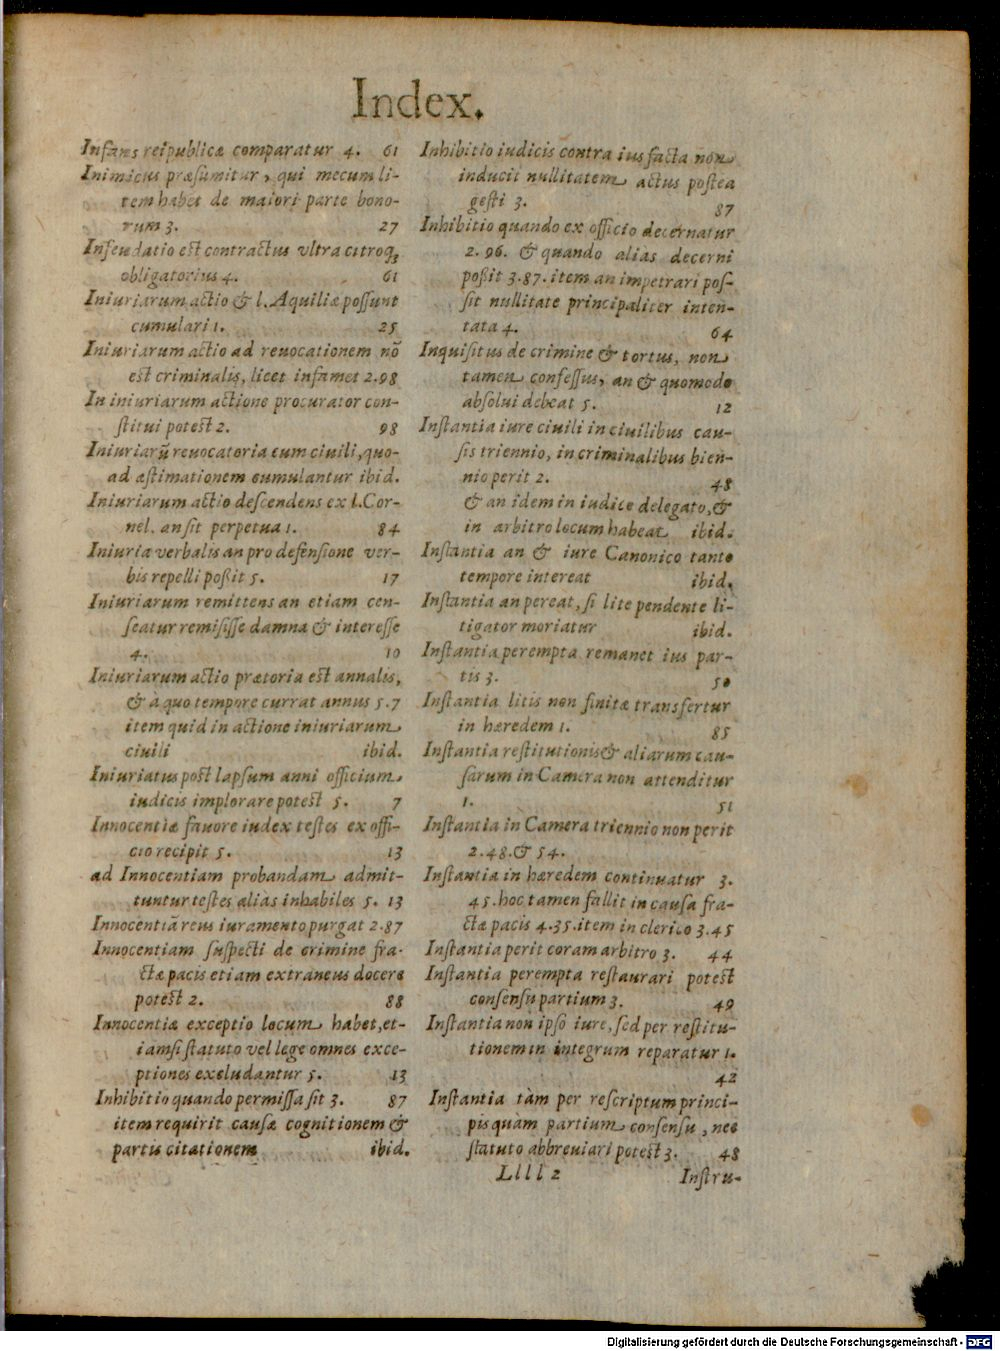 Index.
Infans reipublicæ comparatur 4. 61
Inimicus præsumitur, qui mecum li-
tem habet de maiori parte bono-
rum 3. 27
Infeudatio est contractus vltra citroq;
obligatorius 4. 61
Iniuriarum actio & l. Aquiliæ possunt
cumulari 1. 25
Iniuriarum actio ad reuocationem nõ
est criminalis, licet infamet 2. 98
In iniuriarum actione procurator con-
stitui potest 2. 98
Iniuriarũ reuocatoria cum ciuili, quo-
ad æstimationem cumulantur ibid.
Iniuriarum actio descendens ex l. Cor-
nel. an sit perpetua 1. 84
Iniuria verbalis an pro defensione ver-
bis repelli poßit 5. 17
Iniuriarum remittens an etiam cen-
seatur remisisse damna & interesse
4. 10
Iniuriarum actio prætoria est annalis,
& à quo tempore currat annus 5. 7
item quid in actione iniuriarum
ciuili ibid.
Iniuriatus post lapsum anni officium
iudicis implorare potest 5. 7
Innocentiæ fauore iudex testes ex offi-
cio recipit 5. 13
ad Innocentiam probandam admit-
tuntur testes aliàs inhabiles 5. 13
Innocentiã reus iuramento purgat 2. 87
Innocentiam suspecti de crimine fra-
ctæ pacis etiam extraneus docere
potest 2. 88
Innocentiæ exceptio locum habet, et-
iamsi statuto vel lege omnes exce-
ptiones excludantur 5. 13
Inhibitio quando permissa sit 3. 87
item requirit causæ cognitionem &
partis citationem ibid.
Inhibitio iudicis contra ius facta non
inducit nullitatem actus postea
gesti 3. 87
Inhibitio quando ex officio decernatur
2. 96. & quando aliàs decerni
poßit 3. 87. item an impetrari pos-
sit nullitate principaliter inten-
tata 4. 64
Inquisitus de crimine & tortus, non
tamen confessus, an & quomodo
absolui debeat 5. 12
Instantia iure ciuili in ciuilibus cau-
sis triennio, in criminalibus bien-
nio perit 2. 48
& an idem in iudice delegato, &
in arbitro locum habeat ibid.
Instantia an & iure Canonico tanto
tempore intereat ibid.
Instantia an pereat, si lite pendente li-
tigator moriatur ibid.
Instantia perempta remanet ius par-
tis 3. 50
Instantia litis non finitæ transfertur
in hæredem 1. 85
Instantia restitutionis & aliarum cau-
sarum in Camera non attenditur
1. 51
Instantia in Camera triennio non perit
2. 48. & 54.
Instantia in hæredem continuatur 3.
45. hoc tamen fallit in causa fra-
ctæ pacis 4. 35. item in clerico 3. 45
Instantia perit coram arbitro 3. 44
Instantia perempta restaurari potest
consensu partium 3. 49
Instantia non ipso iure, sed per restitu-
tionem in integrum reparatur 1.
42
Instantia tàm per rescriptum princi-
pis quàm partium consensu, nec
statuto abbreuiari potest 3. 48
Llll 2 Instru-
Digitalisierung gefördert durch die Deutsche Forschungsgemeinschaft - DFG